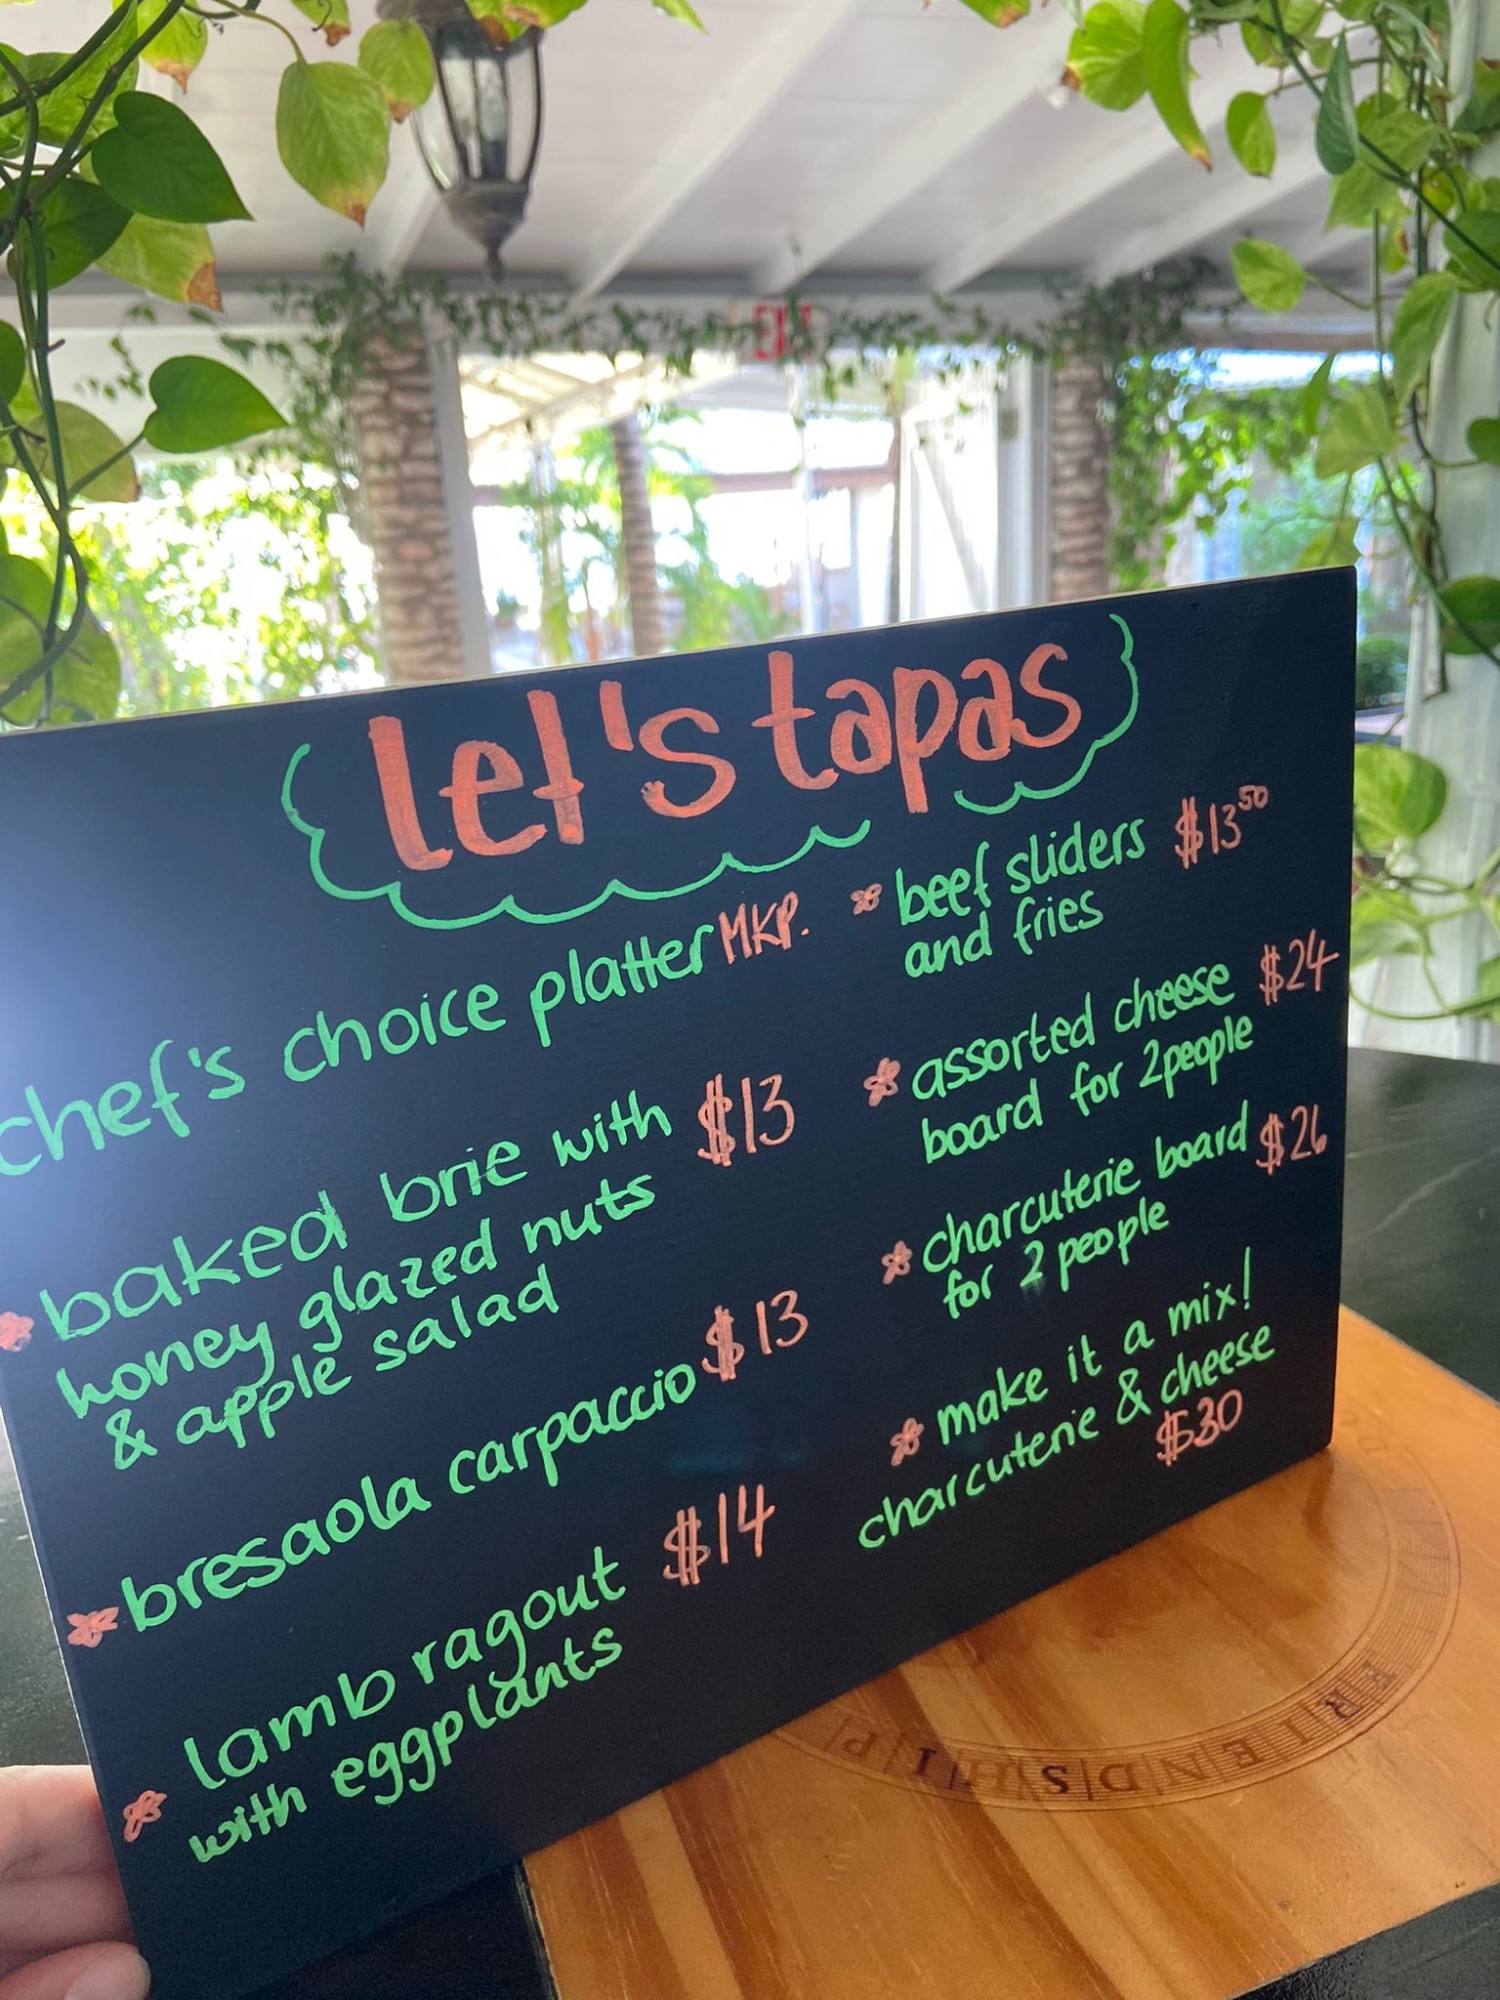 let's tapas
chef's choice platter MKP.
baked brie with $13
honey glazed nuts
& apple salad
bresaola carpaccio $13
lamb ragout $14
with eggplants
beef sliders $13.50
and fries
assorted cheese $24
board for 2people
charcuterie board $26
for 2 people
make it a mix!
charcuterie & cheese
$30
EXIT
FRIENDSHIP